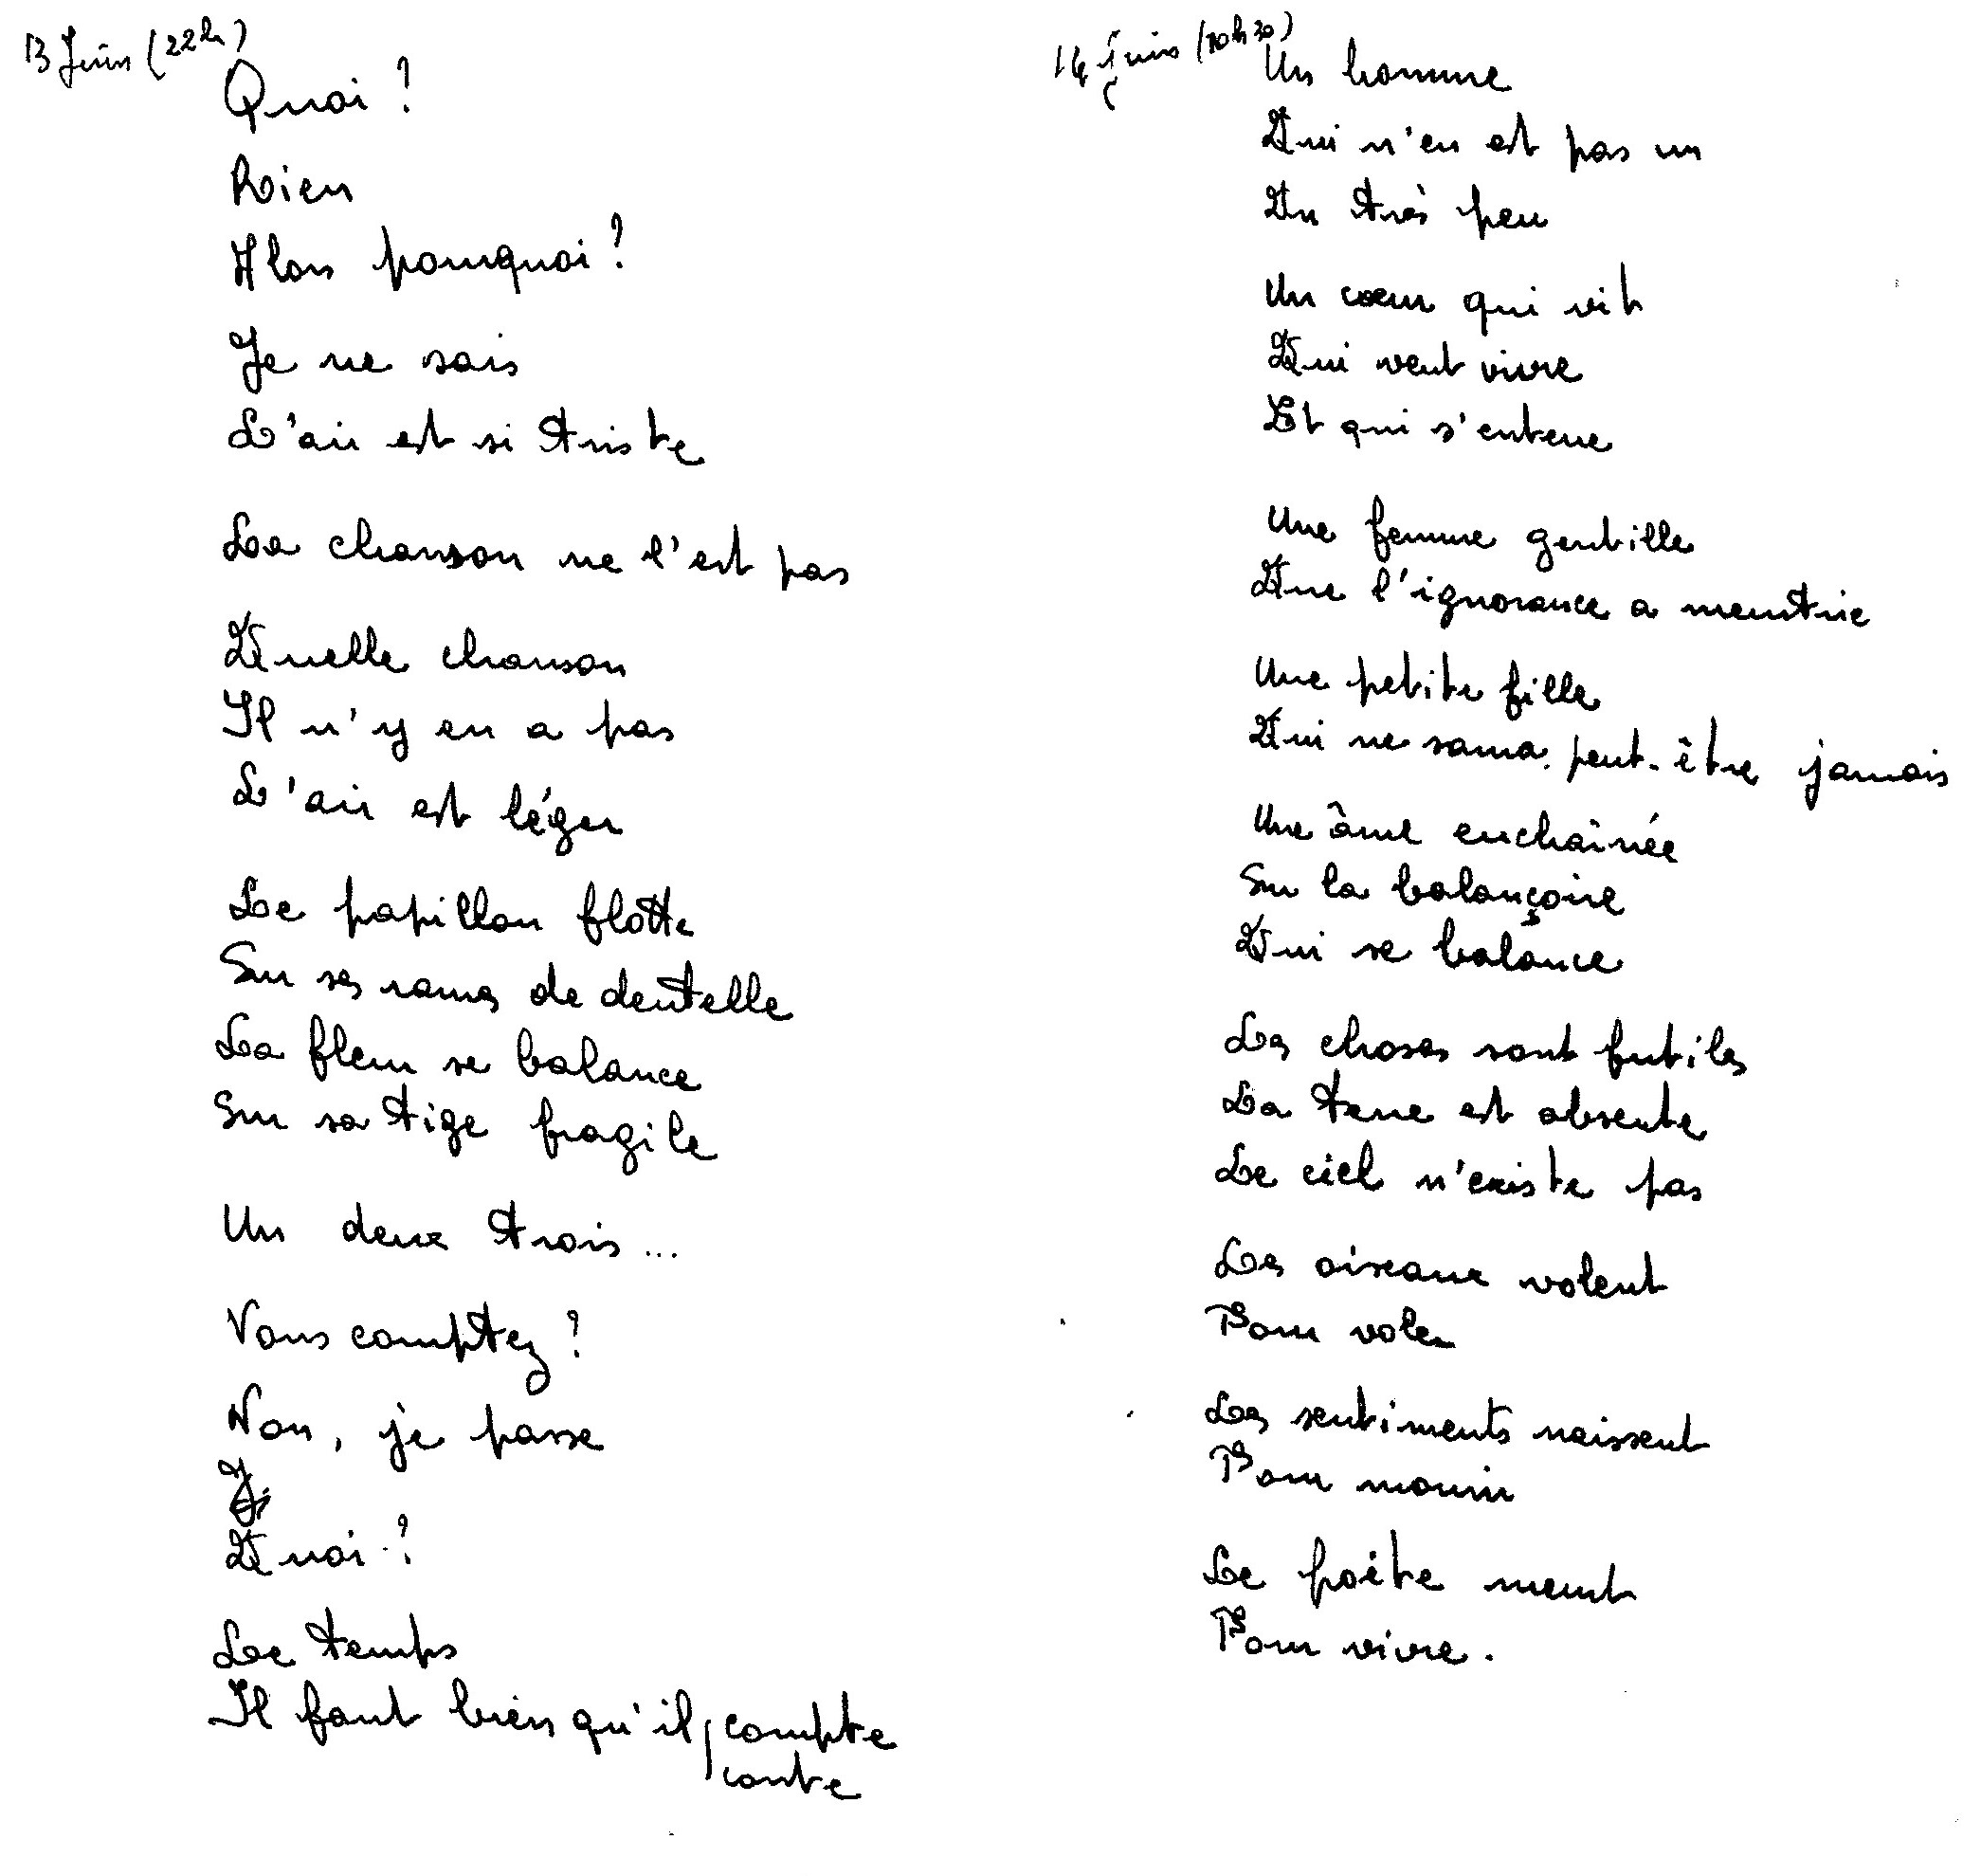 13 Juin (22h)
Quoi ?
Rien
Alors pourquoi ?
Je ne sais
L'air est si triste
La chanson ne l'est pas
Quelle chanson
Il n'y en a pas
L'air est léger
Le papillon flotte
Sur ses rames de dentelle
La fleur se balance
Sur sa tige fragile
Un deux trois...
Vous comptez ?
Non, je passe
Quoi ?
Le temps
Il faut bien qu'il compte
conte
14 juin (10h30)
Un homme
Qui n'en est pas un
Un très peu
Un cœur qui vit
Qui veut vivre
Et qui s'enterre
Une femme gentille
Que l'ignorance a meurtrie
Une petite fille
Qui ne saura peut-être jamais
Une âme enchaînée
Sur la balançoire
Qui se balance
Les choses sont futiles
La terre est absente
Le ciel n'existe pas
Les oiseaux volent
Pour voler
Les sentiments naissent
Pour mourir
Le poète meurt
Pour vivre.